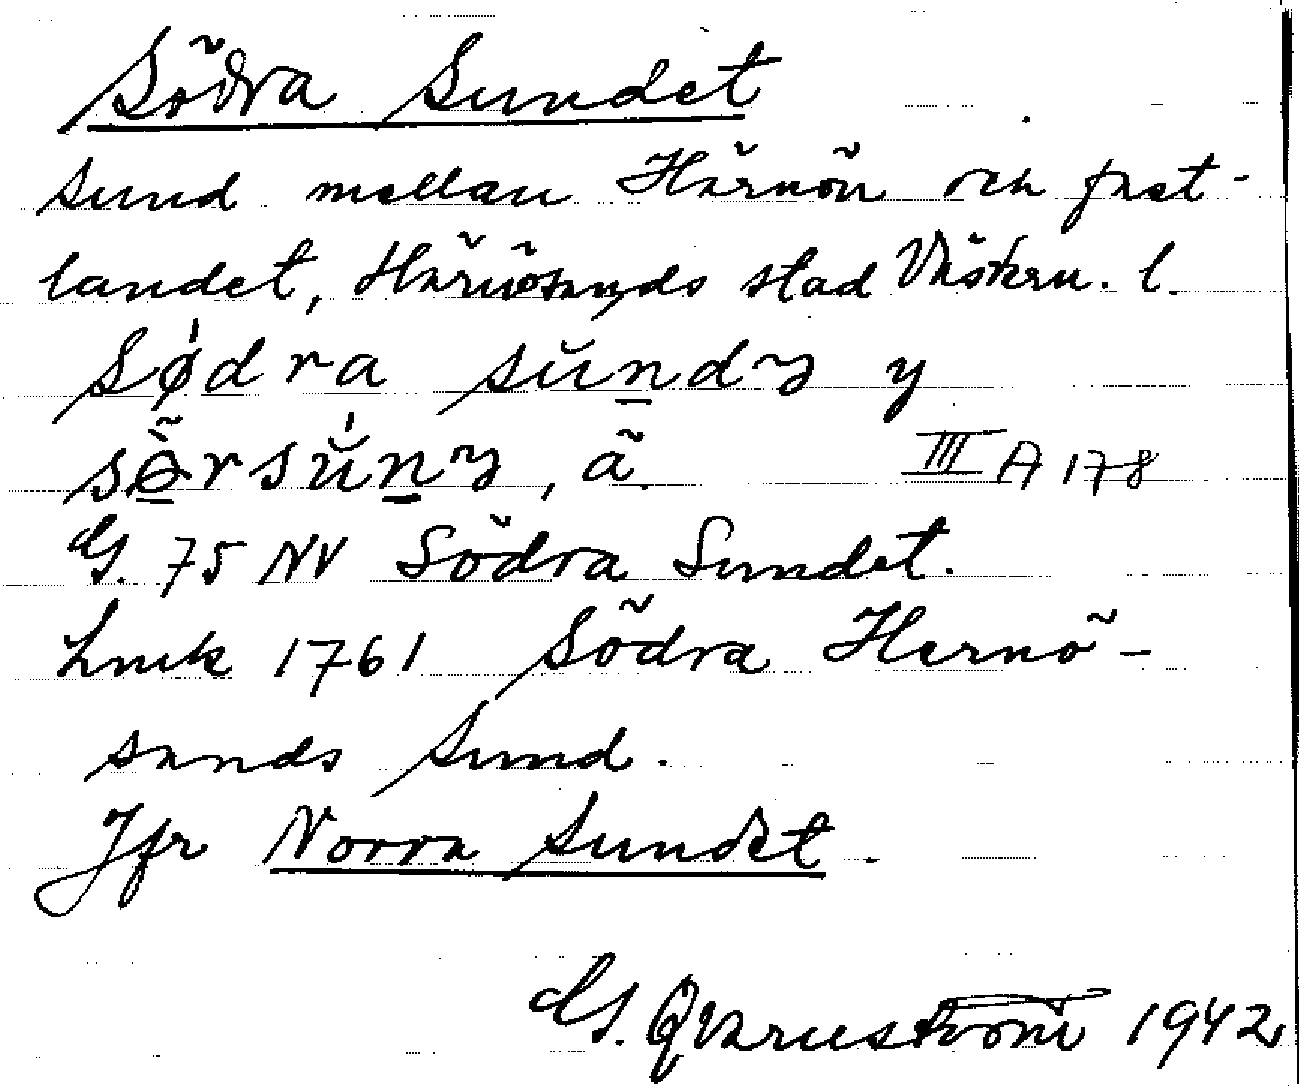 Södra Sundet
sund mellan Härnön och fast-
landet, Härnösands stad Västern. l.
sødra sŭndɜ y
sɵ̀rsŭnɜ, ä. III A 178
G. 75 NV Södra Sundet.
Lmk 1761 Södra Hernö-
sands Sund.
Jfr Norra Sundet.
G. Qvarnström 1942